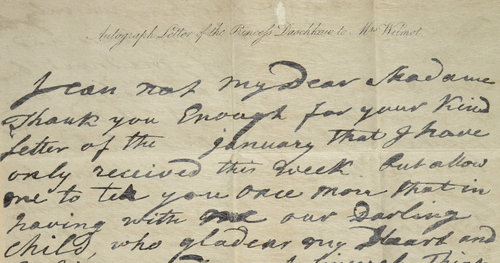 Autograph Letter of the Princess Daschkaw to Mrs Wilmot.
I can not my Dear Madame
Thank you Enough for your Kind
letter of the january that I have
only received this Week. But allow
me to tell you once more that in
having with me our Darling
Child, who gladens my Heart and